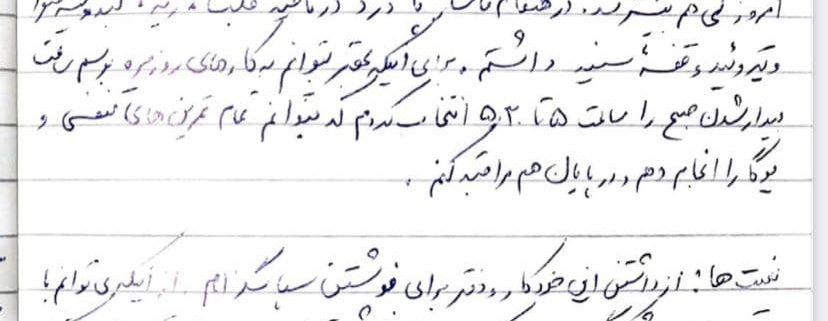 امروز نمی هم در هنگام درد در ناحیه قلب، ریه،
و قفسهٔ سینه داشتم. برای اینکه بهتر بتوانم به کارهای روزمره برسم ساعت
بیدار شدن صبح را ساعت ۵ تا ۵:۳۰ انتخاب کردم که بتوانم تمام تمرین های تنفسی و
یوگا را انجام دهم و در پایان هم مراقبه کنم.
نعمت ها: از داشتن این خودکار و دفتر برای نوشتن سپاسگزارم. از اینکه می توانم با